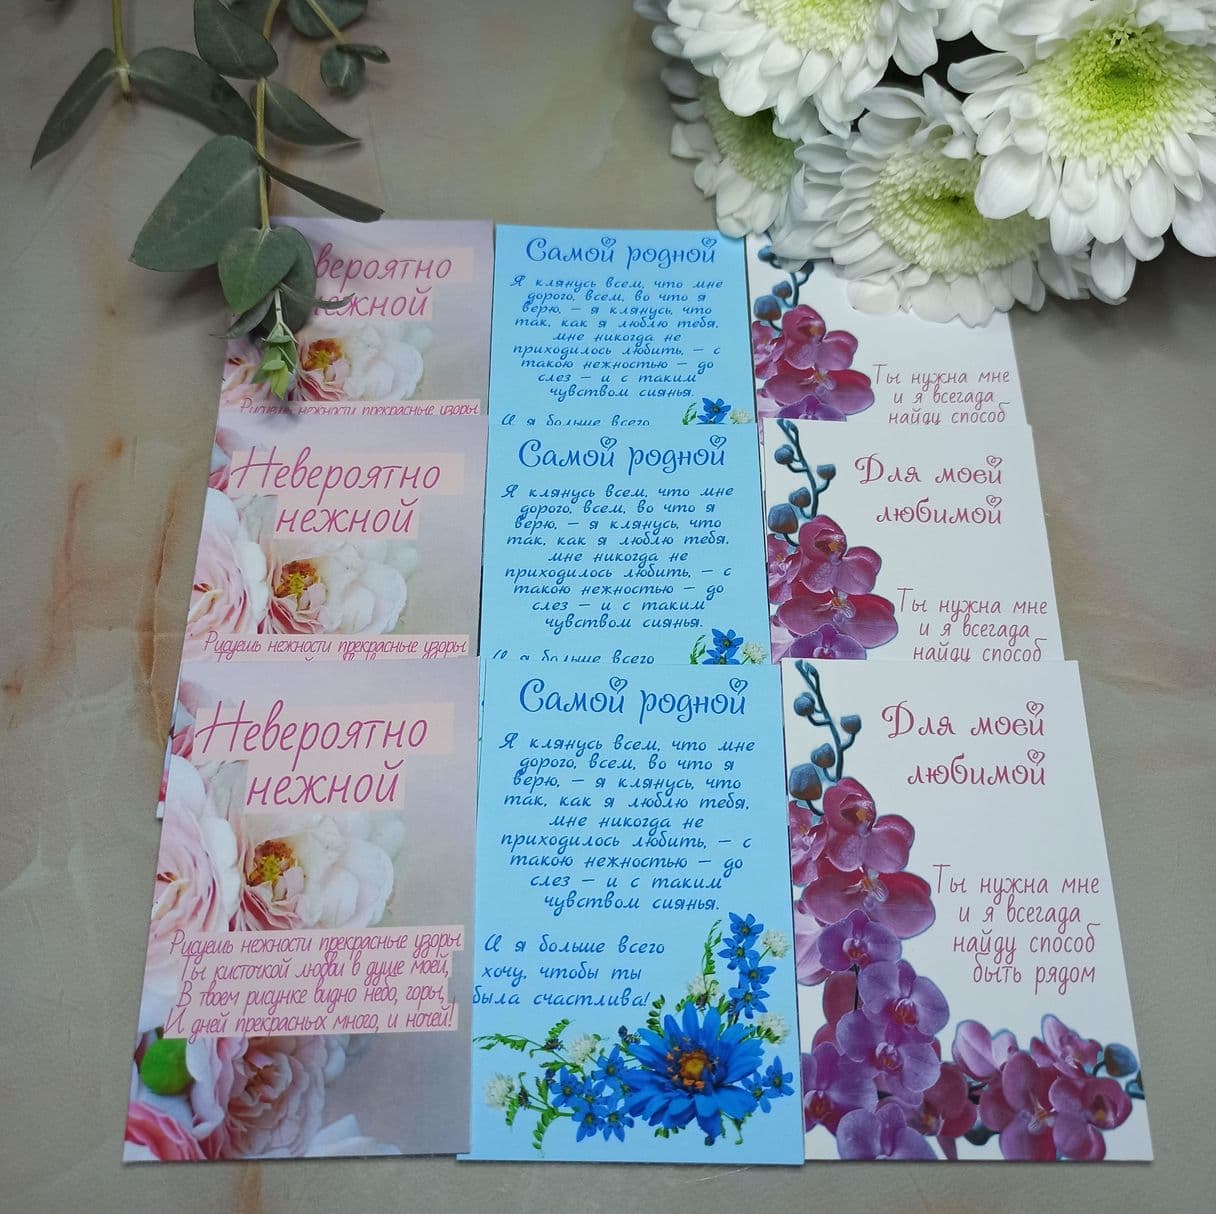 вероятно
нежной
Рисуешь нежности прекрасные узоры
Самой родной
Я клянусь всем, что мне
дорого, всем, во что я
верю, – я клянусь, что
так, как я люблю тебя,
мне никогда не
приходилось любить, – с
такою нежностью – до
слез – и с таким
чувством сиянья.
И я больше всего
Ты нужна мне
и я всегада
найду способ
Невероятно
нежной
Рисуешь нежности прекрасные узоры
Самой родной
Я клянусь всем, что мне
дорого, всем, во что я
верю, – я клянусь, что
так, как я люблю тебя,
мне никогда не
приходилось любить, – с
такою нежностью – до
слез – и с таким
чувством сиянья.
И я больше всего
Для моей
любимой
Ты нужна мне
и я всегада
найду способ
Невероятно
нежной
Рисуешь нежности прекрасные узоры
Ты кисточкой любви в душе моей,
В твоем рисунке видно небо, горы,
И дней прекрасных много, и ночей!
Самой родной
Я клянусь всем, что мне
дорого, всем, во что я
верю, – я клянусь, что
так, как я люблю тебя,
мне никогда не
приходилось любить, – с
такою нежностью – до
слез – и с таким
чувством сиянья.
И я больше всего
хочу, чтобы ты
была счастлива!
Для моей
любимой
Ты нужна мне
и я всегада
найду способ
быть рядом